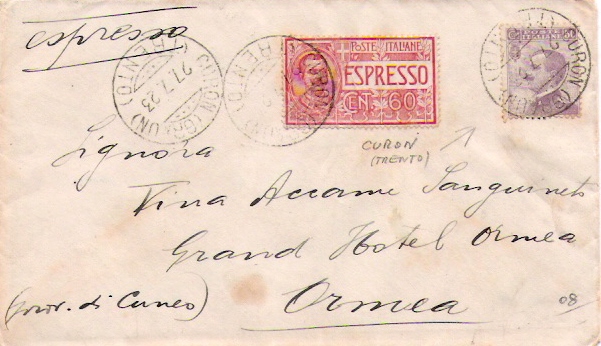 espresso
CURON (GRAUN)
21.7.23
(TRENTO)
POSTE ITALIANE
ESPRESSO
CENT. 60
POSTE ITALIANE 50
CURON
(TRENTO)
Signora
Tina Accame Sanguineti
Grand Hotel Ormea
(prov. di Cuneo) Ormea
08